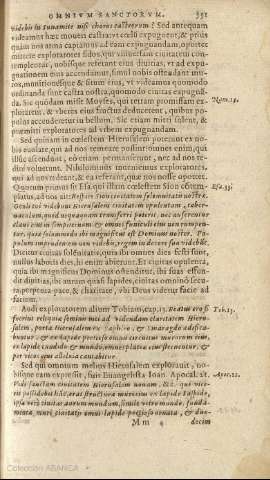 OMNIVM SANCTORVM. 551
videbis in Sunamite nisi choros castrorum? Sed antequam
videamus hæc
& prius
quàm nos arma capiamus ad eam expugnandam, oportet
mittere exploratores
ciuitatem con-
eius diuitias, vt ad expu-
gnationem eius accendamur, simul nobis ostendant mu-
ros, munitionesque & situm eius, vt videamus quomodo
ordinanda sint castra nostra, quomodo ciuitas expugnã-
da. Sic quondam misit Moyses, qui terram promissam ex-
Num. 13.
plorarent, & vberes eius fructus deducerent, quibus po-
pulus accenderetur in bellum. Sic etiam mitti solent, &
præmitti exploratores ad vrbem expugnandam.
Sed quisnam in cœlestem Hierusalem poterunt ex no-
bis euolare, qui ad nos remeare possint? omnes enim, qui
illuc ascendunt, eò etiam permanserunt, nec ad nos re-
ditè voluerunt. Nihilominus inuenimus exploratores,
qui ad nos redeant, & ea referant, quæ nos nosse oportet.
Quorum primus sit Isa. qui illam cœlestem Sion contẽ-
Esa. 33.
platus, ad nos ait: Respice Sion ciuitatem solemnitatis nostræ.
Oculi tui videbunt Hierusalem ciuitatem opulentam, taber-
naculum, quod nequaquam transferri poterit, nec auferentur
claui eius in sempiternum, & omnes funiculi eius non rumpen-
tur: quia solummodo ibi magnificus est Dominus noster.
Dicitur ciuitas solennitatis, quia ibi omnes dies festi sunt,
nullus laboris dies, hi enim abierunt. Et ciuitas opulenta,
quia ibi magnificus Dominus ostenditur, ibi suas effun-
dit diuitias, ibi aurum quasi lapides, ciuitas omninò secu-
ra, perpetua pace, & charitate, vbi Deus videtur facie ad
faciem.
Audi exploratorem alium Tobiam, cap. 13. Beatus ero si
Tob. 13.
fuerint reliquiæ seminis mei ad videndam claritatem Hieru-
salem, portæ Hierusalem ex saphiro, & smaragdo ædifica-
buntur, & ex lapide pretioso omnis circuitus murorum eius,
ex lapide candido & mundo, omnes plateæ eius sternentur, &
per vicos eius alleluia cantabitur.
Sed qui omnium melius Hierusalem explorauit, no-
bisque eam expressit, fuit Euangelista Ioan. Apocal. 21.
Apoc. 21.
Vidi sanctam ciuitatem Hierusalem nouam, &c.
ipsa verò ciuitas aurum mundum, simile vitro mundo, funda-
menta muri, ciuitatis omni lapide pretioso ornata, & duo-
M m 4 decim
Colección ABANCA